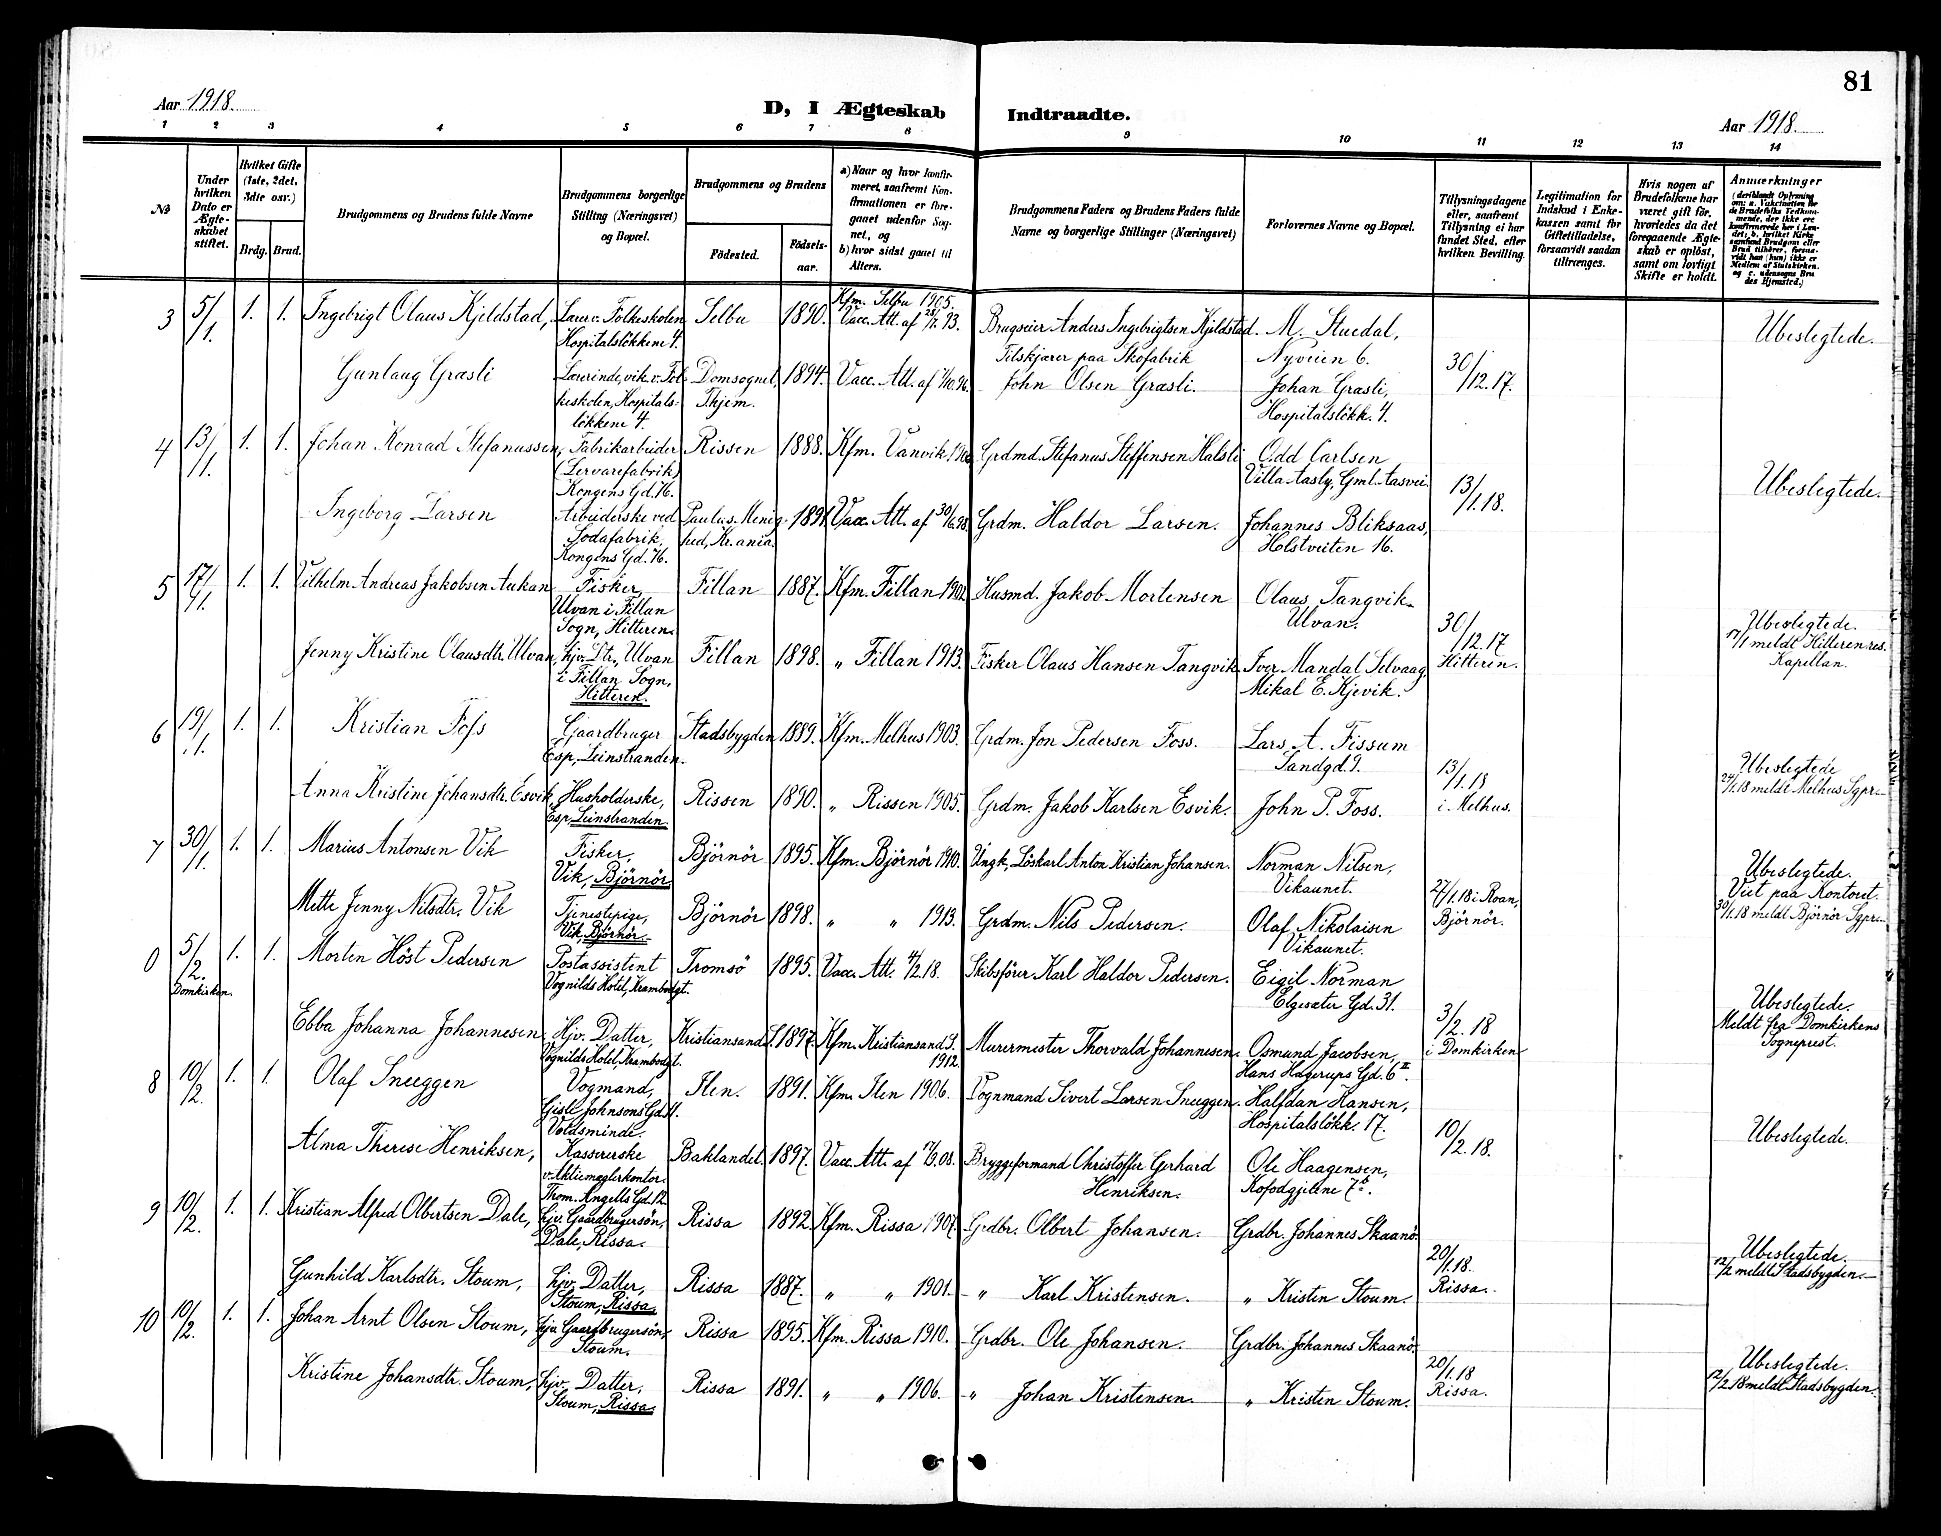 81
Aar 1918.
D, I Ægteskab Indtraadte.
Aar 1918.
1 2 3 4 5 6 7 8 9 10 11 12 13 14
№
Under hvilken Dato er Ægteskabet stiftet.
Hvilket Gifte (1ste, 2det, 3die osv.)
Brdg. Brud.
Brudgommens og Brudens fulde Navne
Brudgommens borgerlige Stilling (Næringsvei) og Bopæl.
Brudgommens og Brudens
Fødested.
Fødselsaar.
a) Naar og hvor konfirmeret, saafremt Konfirmationen er foregaaet udenfor Sognet, og
b) hvor sidst gaaet til Alters.
Brudgommens Faders og Brudens Faders fulde Navne og borgerlige Stillinger (Næringsvei)
Forlovernes Navne og Bopæl.
Tillysningsdagene eller, saafremt Tillysning ei har fundet Sted, efter hvilken Bevilling.
Legitimation for Indskud i Enkekassen samt for Giftetilladelse, forsaavidt saadan tiltrænges.
Hvis nogen af Brudefolkene har været gift før, hvorledes da det foregaaende Ægteskab er opløst, samt om lovligt Skifte er holdt.
Anmærkninger
3 5/1. 1. 1. Ingebrigt Olaus Kjeldstad, Lærer v. Folkeskolen Hospitalsløkkene 4. Selbu 1890. Kfm. Selbu 1905. Vacc. Att. af 93. Brugseier Anders Ingebrigtsen Kjeldstad. M. Stuedal, Nyveien 6. Ubeslegtede.
Gunlaug Græsli Lærerinde, vik. v. Folkeskolen, Hospitalsløkkene 4. Domsognet, Thjem. 1894. Vacc. Att. af Tilskjærer paa Skofabrik John Olsen Græsli. Johan Græsli, Hospitalsløkk. 4. 30/12.17.
4 13/1. 1. 1. Johan Konrad Stefanussen, Fabrikarbeider (Lervarefabrik) Kongens Gd. 76. Rissen 1888. Kfm. Vanvik Grdmd. Stefanus Steffensen Halsli Odd Carlsen Villa Aasly, Gml. Aasvei. Ubeslegtede.
Ingeborg Larsen Arbeiderske ved Sodafabrik, Kongens Gd. 76. Paulus Menighed, Kr.ania. 1891. Vacc. Att. af 30/6.98. Grdm. Haldor Larsen. Johannes Bliksaas, Holstveiten 16. 13/1.18.
5 17/1. 1. 1. Vilhelm Andreas Jakobsen Aukan Fisker, Ulvan i Fillan Sogn, Hitteren. Fillan 1887. Kfm. Fillan Husmd. Jakob Mortensen Olaus Tangvik Ulvan.
Jenny Kristine Olausdtr. Ulvan, hjv. Dtr., Ulvan i Fillan Sogn, Hitteren. Fillan 1898. „ Fillan 1913. Fisker Olaus Hansen Tangvik Iver Mandal Selvaag Mikal E. Kjevik. 30/12.17 Hitteren. Ubeslegtede. 17/1 meldt Hitteren res. Kapellan.
6 19/1. 1. 1. Kristian Foss Gaardbruger Esp, Leinstranden. Stadsbygden 1889. Kfm. Melhus 1903. Grdm. Jon Pedersen Foss. Lars A. Fissum Sandgd. 9.
Anna Kristine Johansdtr. Esvik, Husholderske, Esp Leinstranden. Rissen 1890. „ Rissen 1905. Grdm. Jakob Karlsen Esvik. John P. Foss. 13/1.18 i Melhus. Ubeslegtede 24/1.18 meldt Melhus Sgpr.
7 30/1. 1. 1. Marius Antonsen Vik Fisker, Vik, Bjørnør. Bjørnør 1895. Kfm. Bjørnør 1910. Ungk., Løskarl Anton Kristian Johansen. Norman Nilsen, Vikaunet.
Mette Jenny Nilsdtr. Vik Tjenestepige, Vik, Bjørnør. Bjørnør 1898. „ „ 1913. Grdm. Nils Pedersen. Olaf Nikolaisen Vikaunet. 27/1.18 i Roan, Bjørnør. Ubeslegtede. Viet paa Kontoret. 30/1.18 meldt Bjørnør Sgpr.
0 5/2. Domkirken. 1. 1. Morten Höst Pedersen Postassistent Vognilds Hotel, Krambodgt. Tromsø 1895. Vacc. Att. 4/2.18. Skibsfører Karl Haldor Pedersen. Eigil Norman Elgesæter Gd. 31.
Ebba Johanna Johannesen Hjv. Datter, Vognilds Hotel, Krambodgt. Kristiansand S. 1897. Kfm. Kristiansand S. 1912. Murermester Thorvald Johannesen. Osmund Jacobsen, Hans Hagerups Gd. 6 II. 3/2.18 i Domkirken Ubeslegtede. Meldt fra Domkirkens Sogneprest.
8 10/2. 1. 1. Olaf Sneeggen Vogmand, Gisle Johnsons Gd. 1. Voldsminde. Ilen. 1891. Kfm. Ilen 1906. Vognmand Sivert Larsen Sneeggen. Halfdan Hansen, Hospitalsløkk. 17.
Alma Therese Henriksen, Kassererske v. Aktiemæglerkontor. Thom. Angells Gd. 12. Baklandet. 1897. Vacc. Att. af 17/9.08. Bryggeformand Christoffer Gerhard Henriksen. Ole Haagensen, Kofodgjelene 7b. 10/2.18. Ubeslegtede.
9 10/2. 1. 1. Kristian Alfred Olbertsen Dale, hjv. Gaardbrugersøn, Dale, Rissa. Rissa 1892. Kfm. Rissa 1907. Grdbr. Olbert Johansen. Grdbr. Johannes Skaanø.
Gunhild Karlsdtr. Stoum, hjv. Datter, Stoum, Rissa. Rissa 1887. „ „ 1901. „ Karl Kristensen. „ Kristen Stoum. 20/1.18. Rissa. Ubeslegtede. 12/2 meldt Stadsbygden.
10 10/2. 1. 1. Johan Arnt Olsen Stoum, hjv. Gaardbrugersøn, Stoum. Rissa 1895. Kfm. Rissa 1910. Grdbr. Ole Johansen. Grdbr. Johannes Skaanø.
Kristine Johansdtr. Stoum, hjv. Datter, Stoum, Rissa. Rissa 1891. „ „ 1906. „ Johan Kristensen. „ Kristen Stoum. 20/1.18 Rissa. Ubeslegtede. 12/2.18 meldt Stadsbygden.